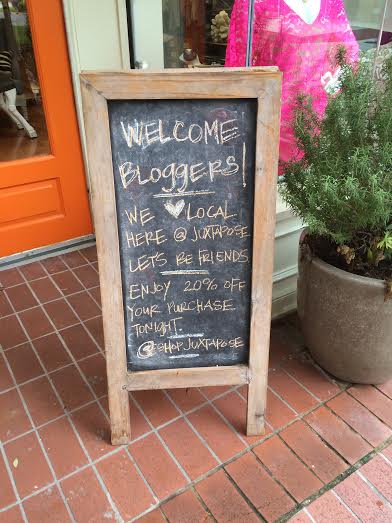 WELCOME
BLOggERS!
WE ♥ LOCAL
HERE @ JUXTAPOSE
LETS BE FRIENDS
ENJOY 20% OFF
YOUR PURCHASE
TONIGHT.
@SHOPJUXTAPOSE